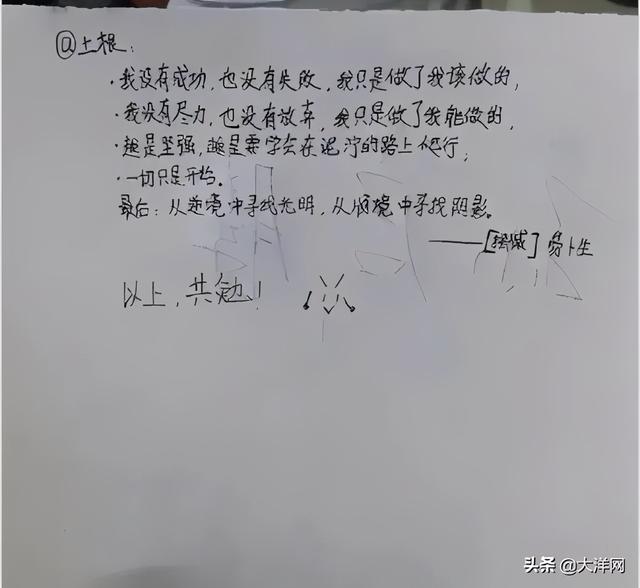 @土根：
·我没有成功，也没有失败，我只是做了我该做的，
·我没有尽力，也没有放弃，我只是做了我能做的，
·越是坚强，越是要学会在泥泞的路上爬行；
·一切只是开始。
最后：从逆境中寻找光明，从顺境中寻找阴影。
——[挪威] 易卜生
以上，共勉！
头条 @大洋网